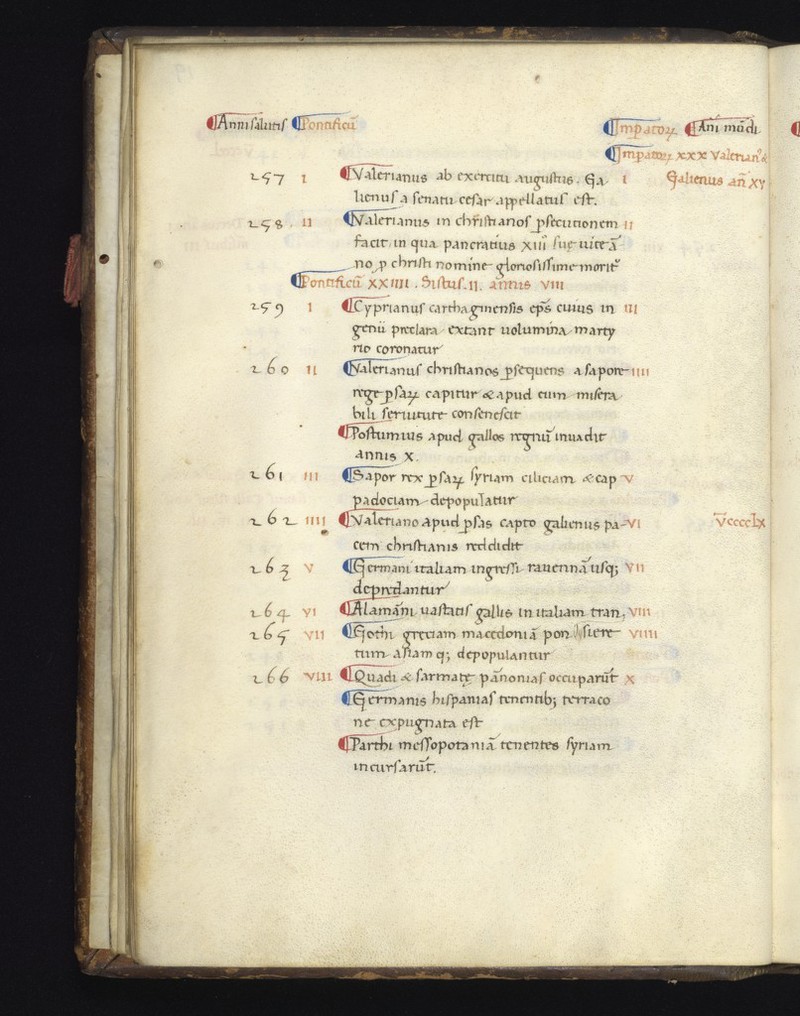 ¶Anni salutis ¶Pontificū ¶Imꝑatoꝝ ¶Añi mūdi
¶Imꝑatoꝝ xxx Valerianꝰ &
257 I ¶Valerianus ab exercitu augustus. Ga I Galienus añ xv
lienus a senatu cesar appellatus est.
258. II ¶Valerianus in christianos ꝑsecutionem II
facit in qua pancratius xiii sue uite ā
no ꝓ christi nomine gloriosissime moritꝰ
¶Pontificū XXIIII. Sistus. II. annis VIII
259 I ¶Cyprianus carthaginensis eps̄ cuius in III
genii preclara extant uolumina marty
rio coronatur
260 II ¶Valerianus christianos ꝑsequens a sapore IIII
rege ꝑsaꝝ capitur & apud eum misera
bili seruitute consenescit
¶Postumius apud gallos regnū inuadit
annis X.
261 III ¶Sapor rex ꝑsaꝝ syriam ciliciam & cap V
padociam depopulatur
262 IIII ¶Valeriano apud ꝑsas capto galienus pa- VI V̄ccccLx
cem christianis reddidit
263 V ¶Germani italiam ingressi rauennā usq; VII
depredantur
264 VI ¶Alamāni uastatis gallis in italiam tran. VIII
265 VII ¶Gothi greciam macedoniā pon siere VIIII
tum asiam q; depopulantur
266 VIII ¶Quadi & sarmate pānonias occuparūt X
¶Germanis hispanias tenentib; terraco
ne expugnata est
¶Parthi messopotaniā tenentes syriam
incursarūt.